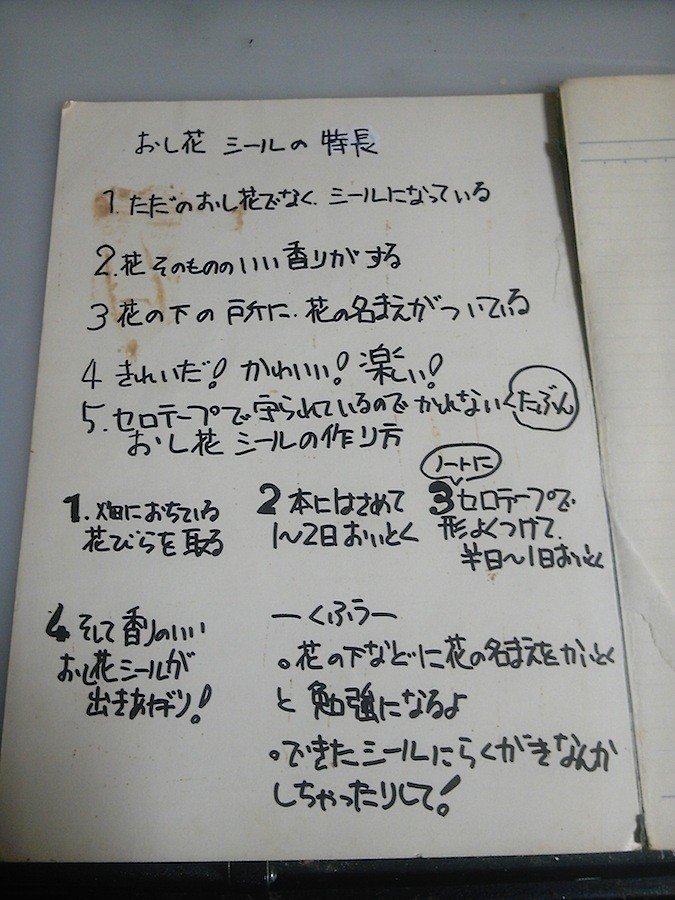 おし花 シールの 特長
1.ただのおし花でなく、シールになっている
2.花そのもののいい香りがする
3 花の下の所に、花の名まえがついている
4 きれいだ!かわいい!楽しい!
5.セロテープで守られているのでかれない<たぶん
おし花 シールの作り方
1.畑におちている
花びらを取る
2 本にはさめて
1〜2日おいとく
ノートに
3 セロテープで
形よくつけて、
半日〜1日おいとく
4 そして香りのいい
おし花シールが
出きあがり!
ーくふうー
。花の下などに花の名まえをかいとく
と 勉強になるよ
。できたシールにらくがきなんか
しちゃったりして!